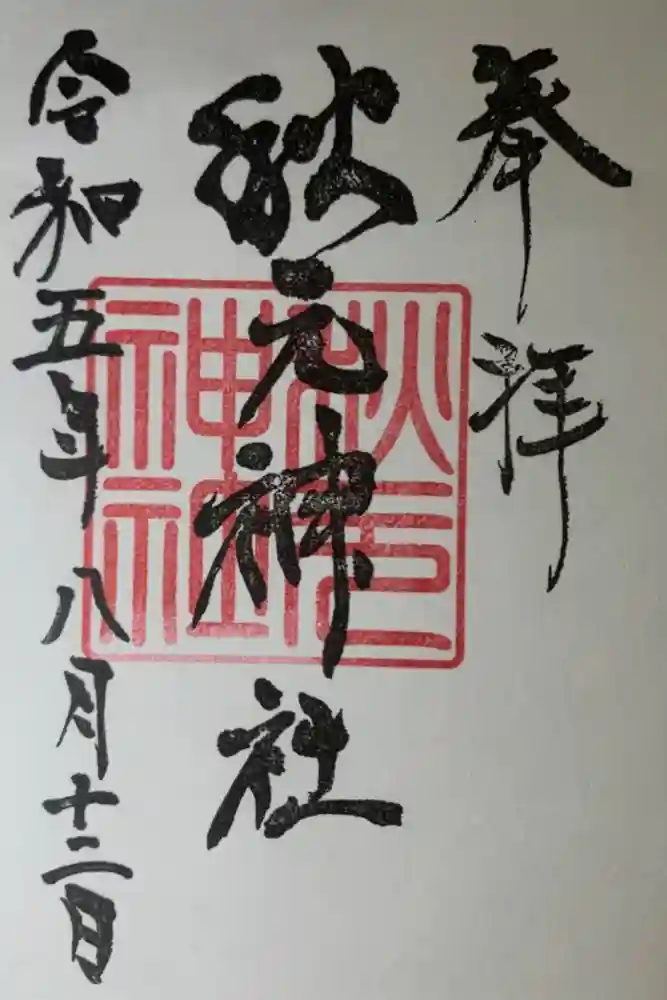 奉拝
秋元神社
秋元
神社
令和五年
八月十二日